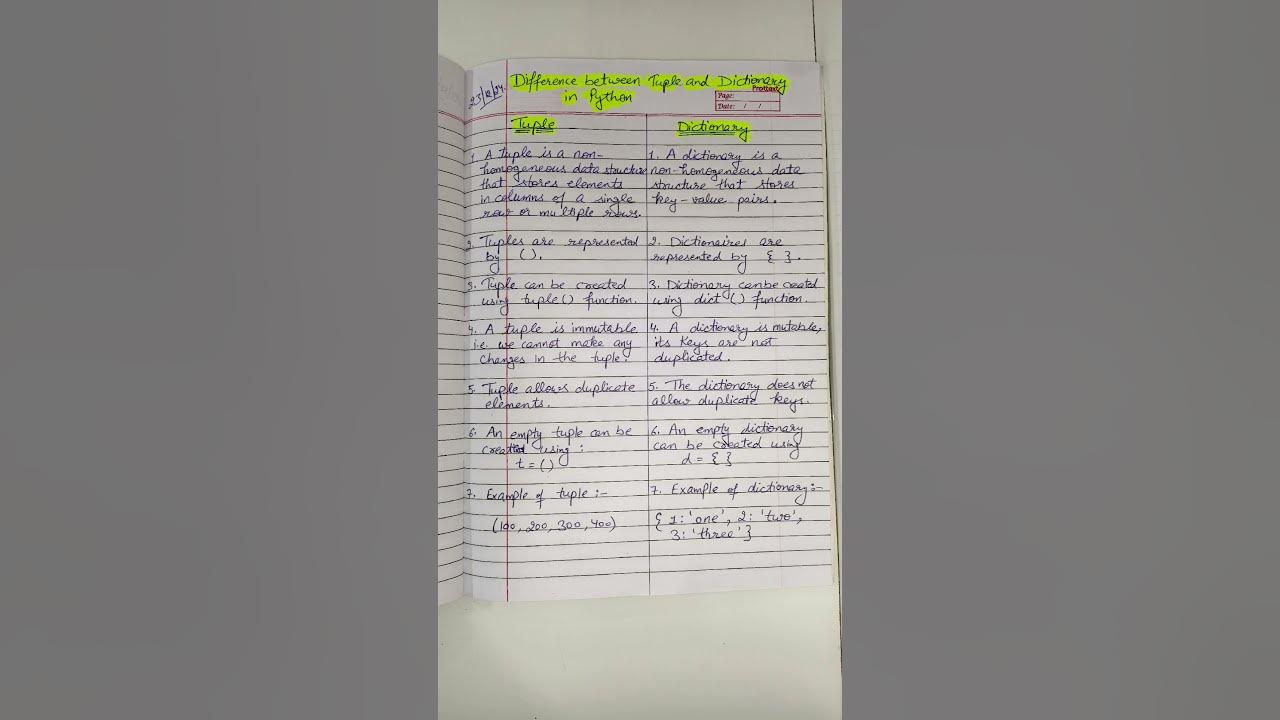 23/2/24
Difference between Tuple and Dictionary
in Python
Page:
Date: / /
Tuple
1. A tuple is a non-
homogeneous data structure
that stores elements
in columns of a single
row or multiple rows.
2. Tuples are represented
by ().
3. Tuple can be created
using tuple() function.
4. A tuple is immutable
i.e. we cannot make any
changes in the tuple.
5. Tuple allows duplicate
elements.
6. An empty tuple can be
created using :
t = ()
7. Example of tuple :-
(100, 200, 300, 400)
Dictionary
1. A dictionary is a
non-homogeneous data
structure that stores
key-value pairs.
2. Dictionaires are
represented by { }.
3. Dictionary can be created
using dict () function.
4. A dictionary is mutable,
its keys are not
duplicated.
5. The dictionary does not
allow duplicate keys.
6. An empty dictionary
can be created using
d = { }
7. Example of dictionary:-
{ 1: 'one', 2: 'two',
3: 'three' }